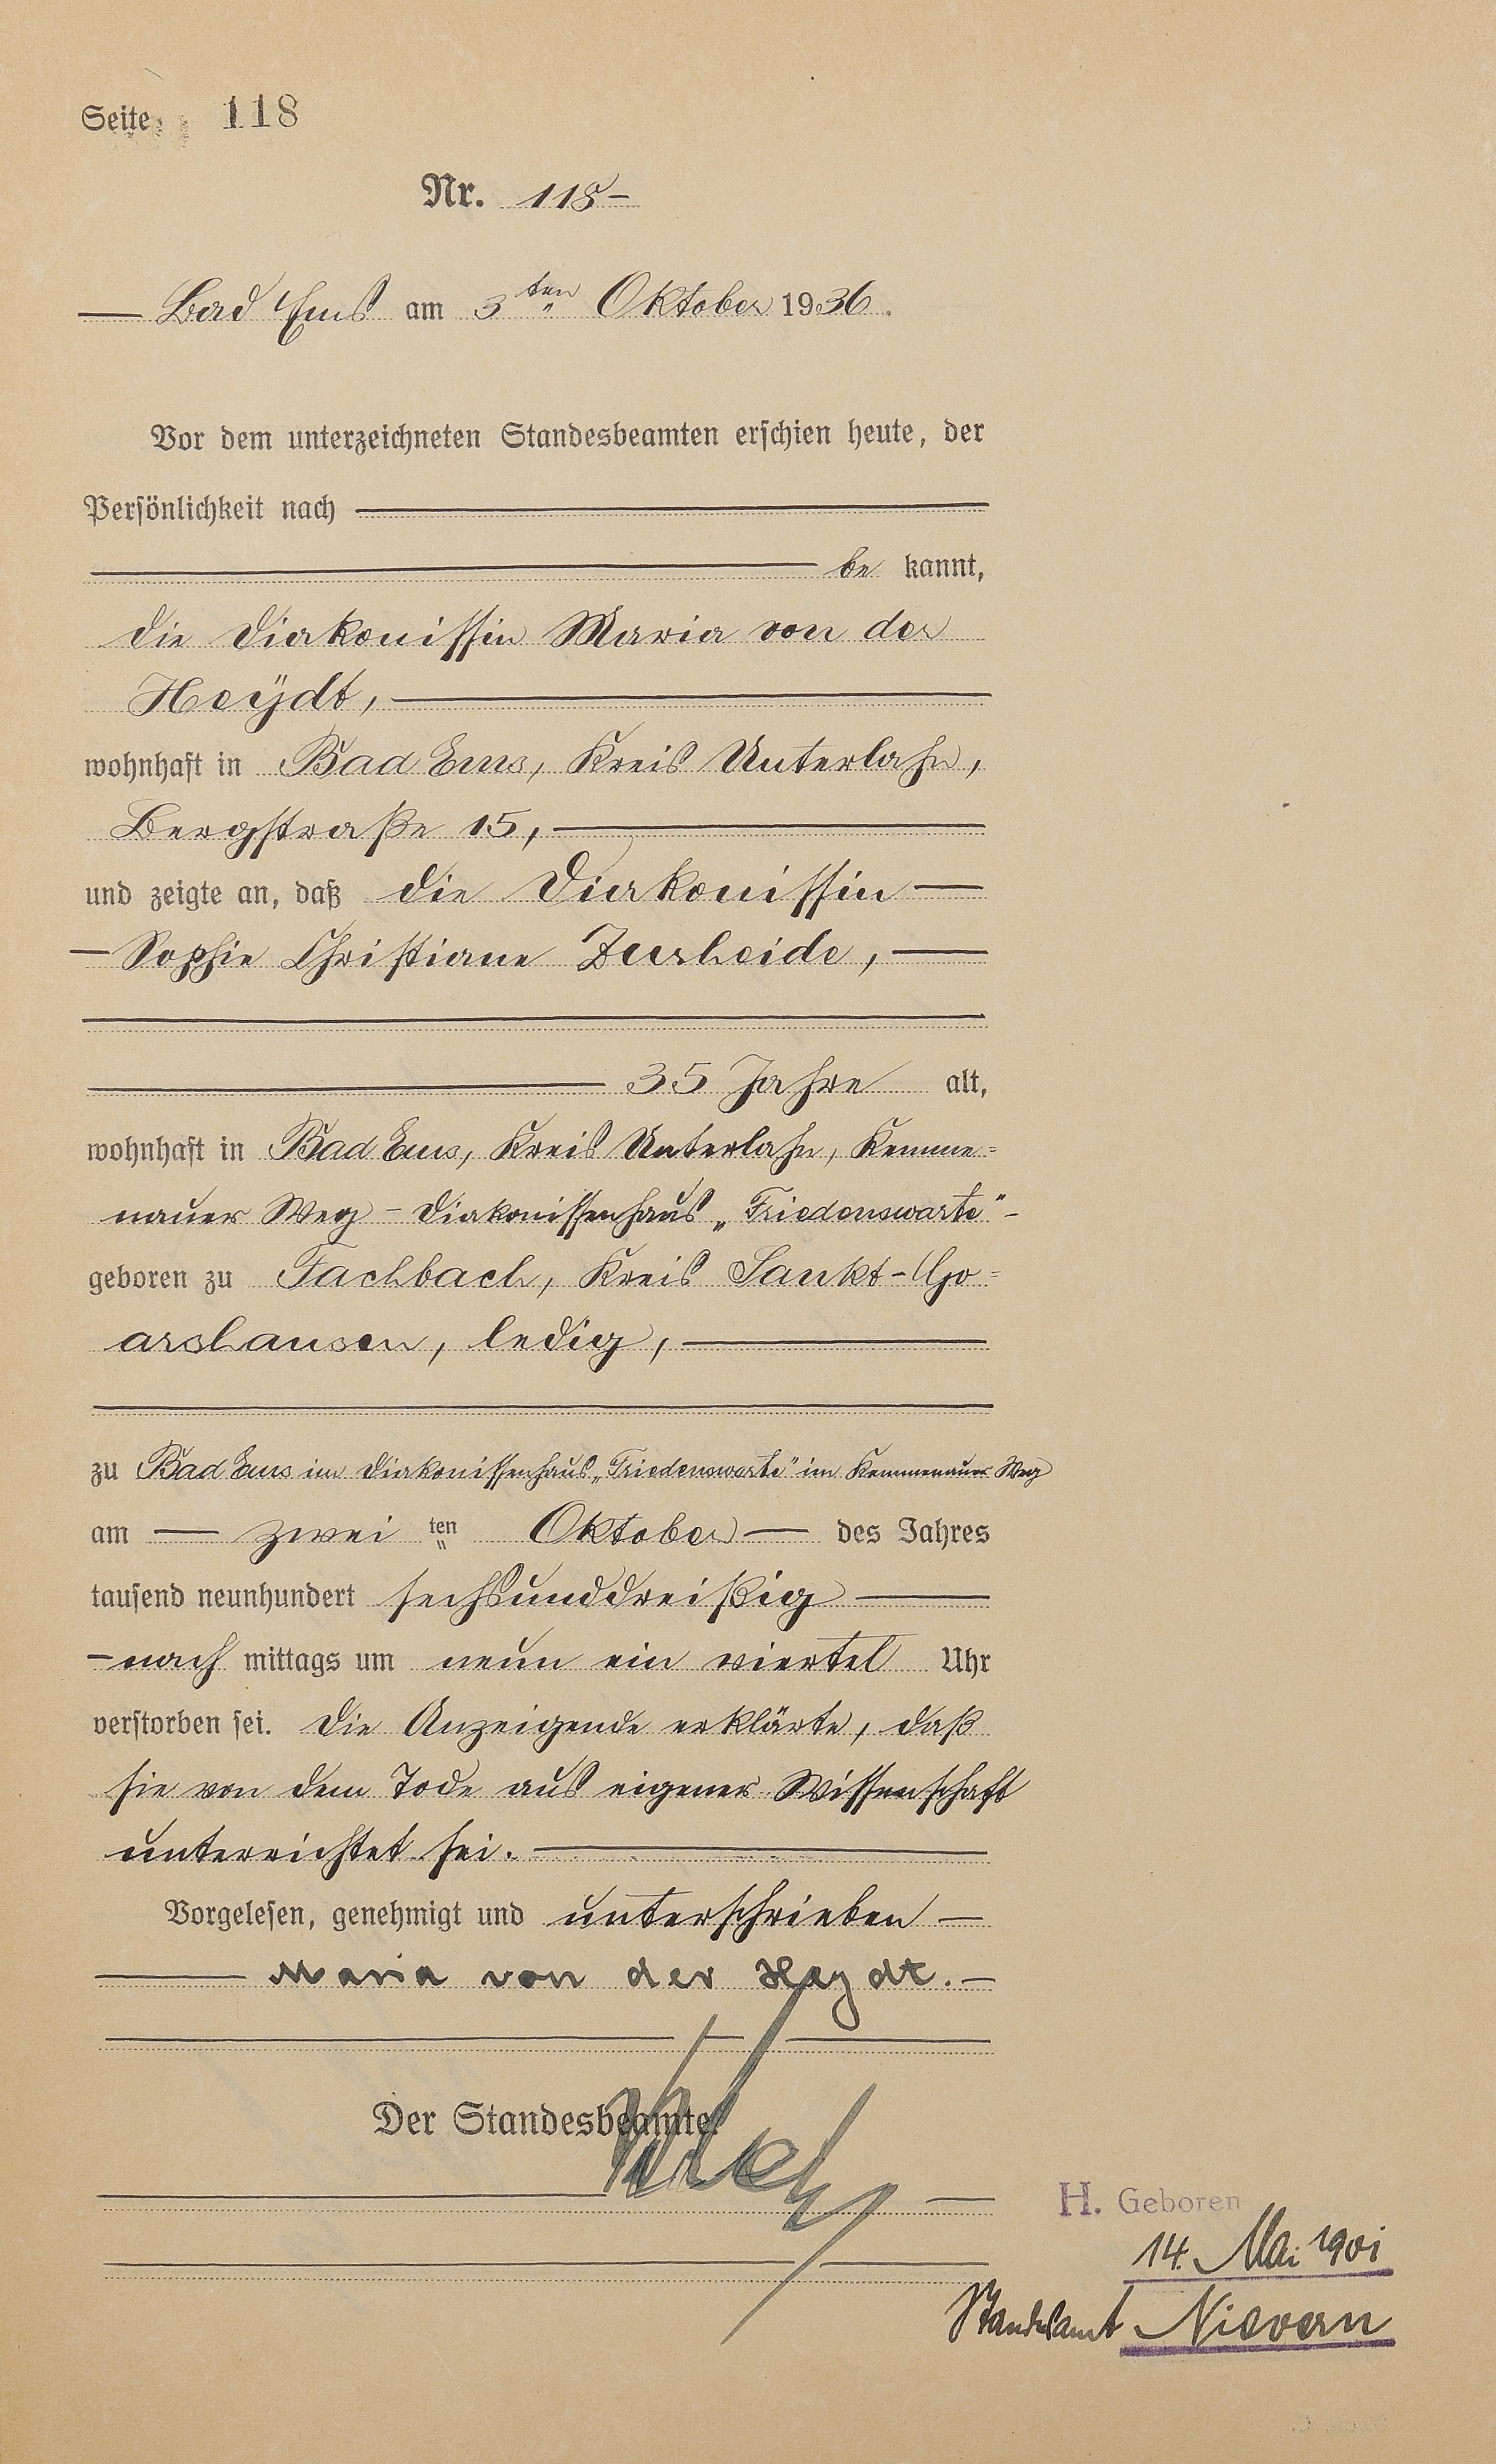 Seite 118
Nr. 118
Bad Ems am 3ten Oktober 1936.
Vor dem unterzeichneten Standesbeamten erschien heute, der
Persönlichkeit nach
be kannt,
die Diakonissin Maria von der
Heÿdt,
wohnhaft in Bad Ems, Kreis Unterlahn,
Bergstraße 15,
und zeigte an, daß die Diakonissin
Sophie Christiane Zurheide,
35 Jahre alt,
wohnhaft in Bad Ems, Kreis Unterlahn, Kemme=
nauer Weg - Diakonissenhaus „Friedenswarte" -
geboren zu Fachbach, Kreis Sankt-Go=
arshausen, ledig,
zu Bad Ems im Diakonissenhaus „Friedenswarte" im Kemmenauer Weg
am zwei ten Oktober des Jahres
tausend neunhundert sechsunddreißig
nach mittags um neun ein viertel Uhr
verstorben sei. Die Anzeigende erklärte, daß
sie von dem Tode aus eigener Wissenschaft
unterrichtet sei.
Vorgelesen, genehmigt und unterschrieben
Maria von der Heydt.
Der Standesbeamte.
H. Geboren
14. Mai 1901
Standesamt Nievern